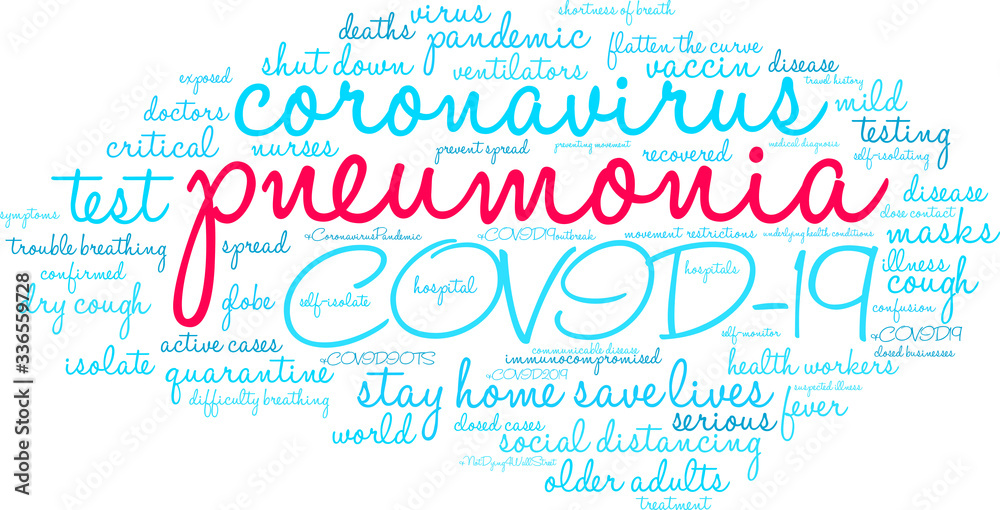 shortness of breath
virus
deaths
pandemic
flatten the curve
shut down
ventilators
vaccin
disease
travel history
exposed
coronavirus
mild
doctors
testing
critical
nurses
prevent spread
preventing movement
recovered
medical diagnosis
self-isolating
pneumonia
test
disease
symptoms
close contact
trouble breathing
spread
#CoronavirusPandemic
#COVID19outbreak
movement restrictions
underlying health conditions
masks
COVID-19
confirmed
illness
dry cough
globe
self-isolate
hospital
hospitals
cough
confusion
active cases
self-monitor
#COVID19
isolate
#COVIDIOTS
communicable disease
immunocompromised
closed businesses
quarantine
#COVID2019
health workers
difficulty breathing
stay home save lives
suspected illness
fever
world
closed cases
serious
social distancing
#NotDying4WallStreet
older adults
treatment
Adobe Stock | #336559728
Adobe Stock